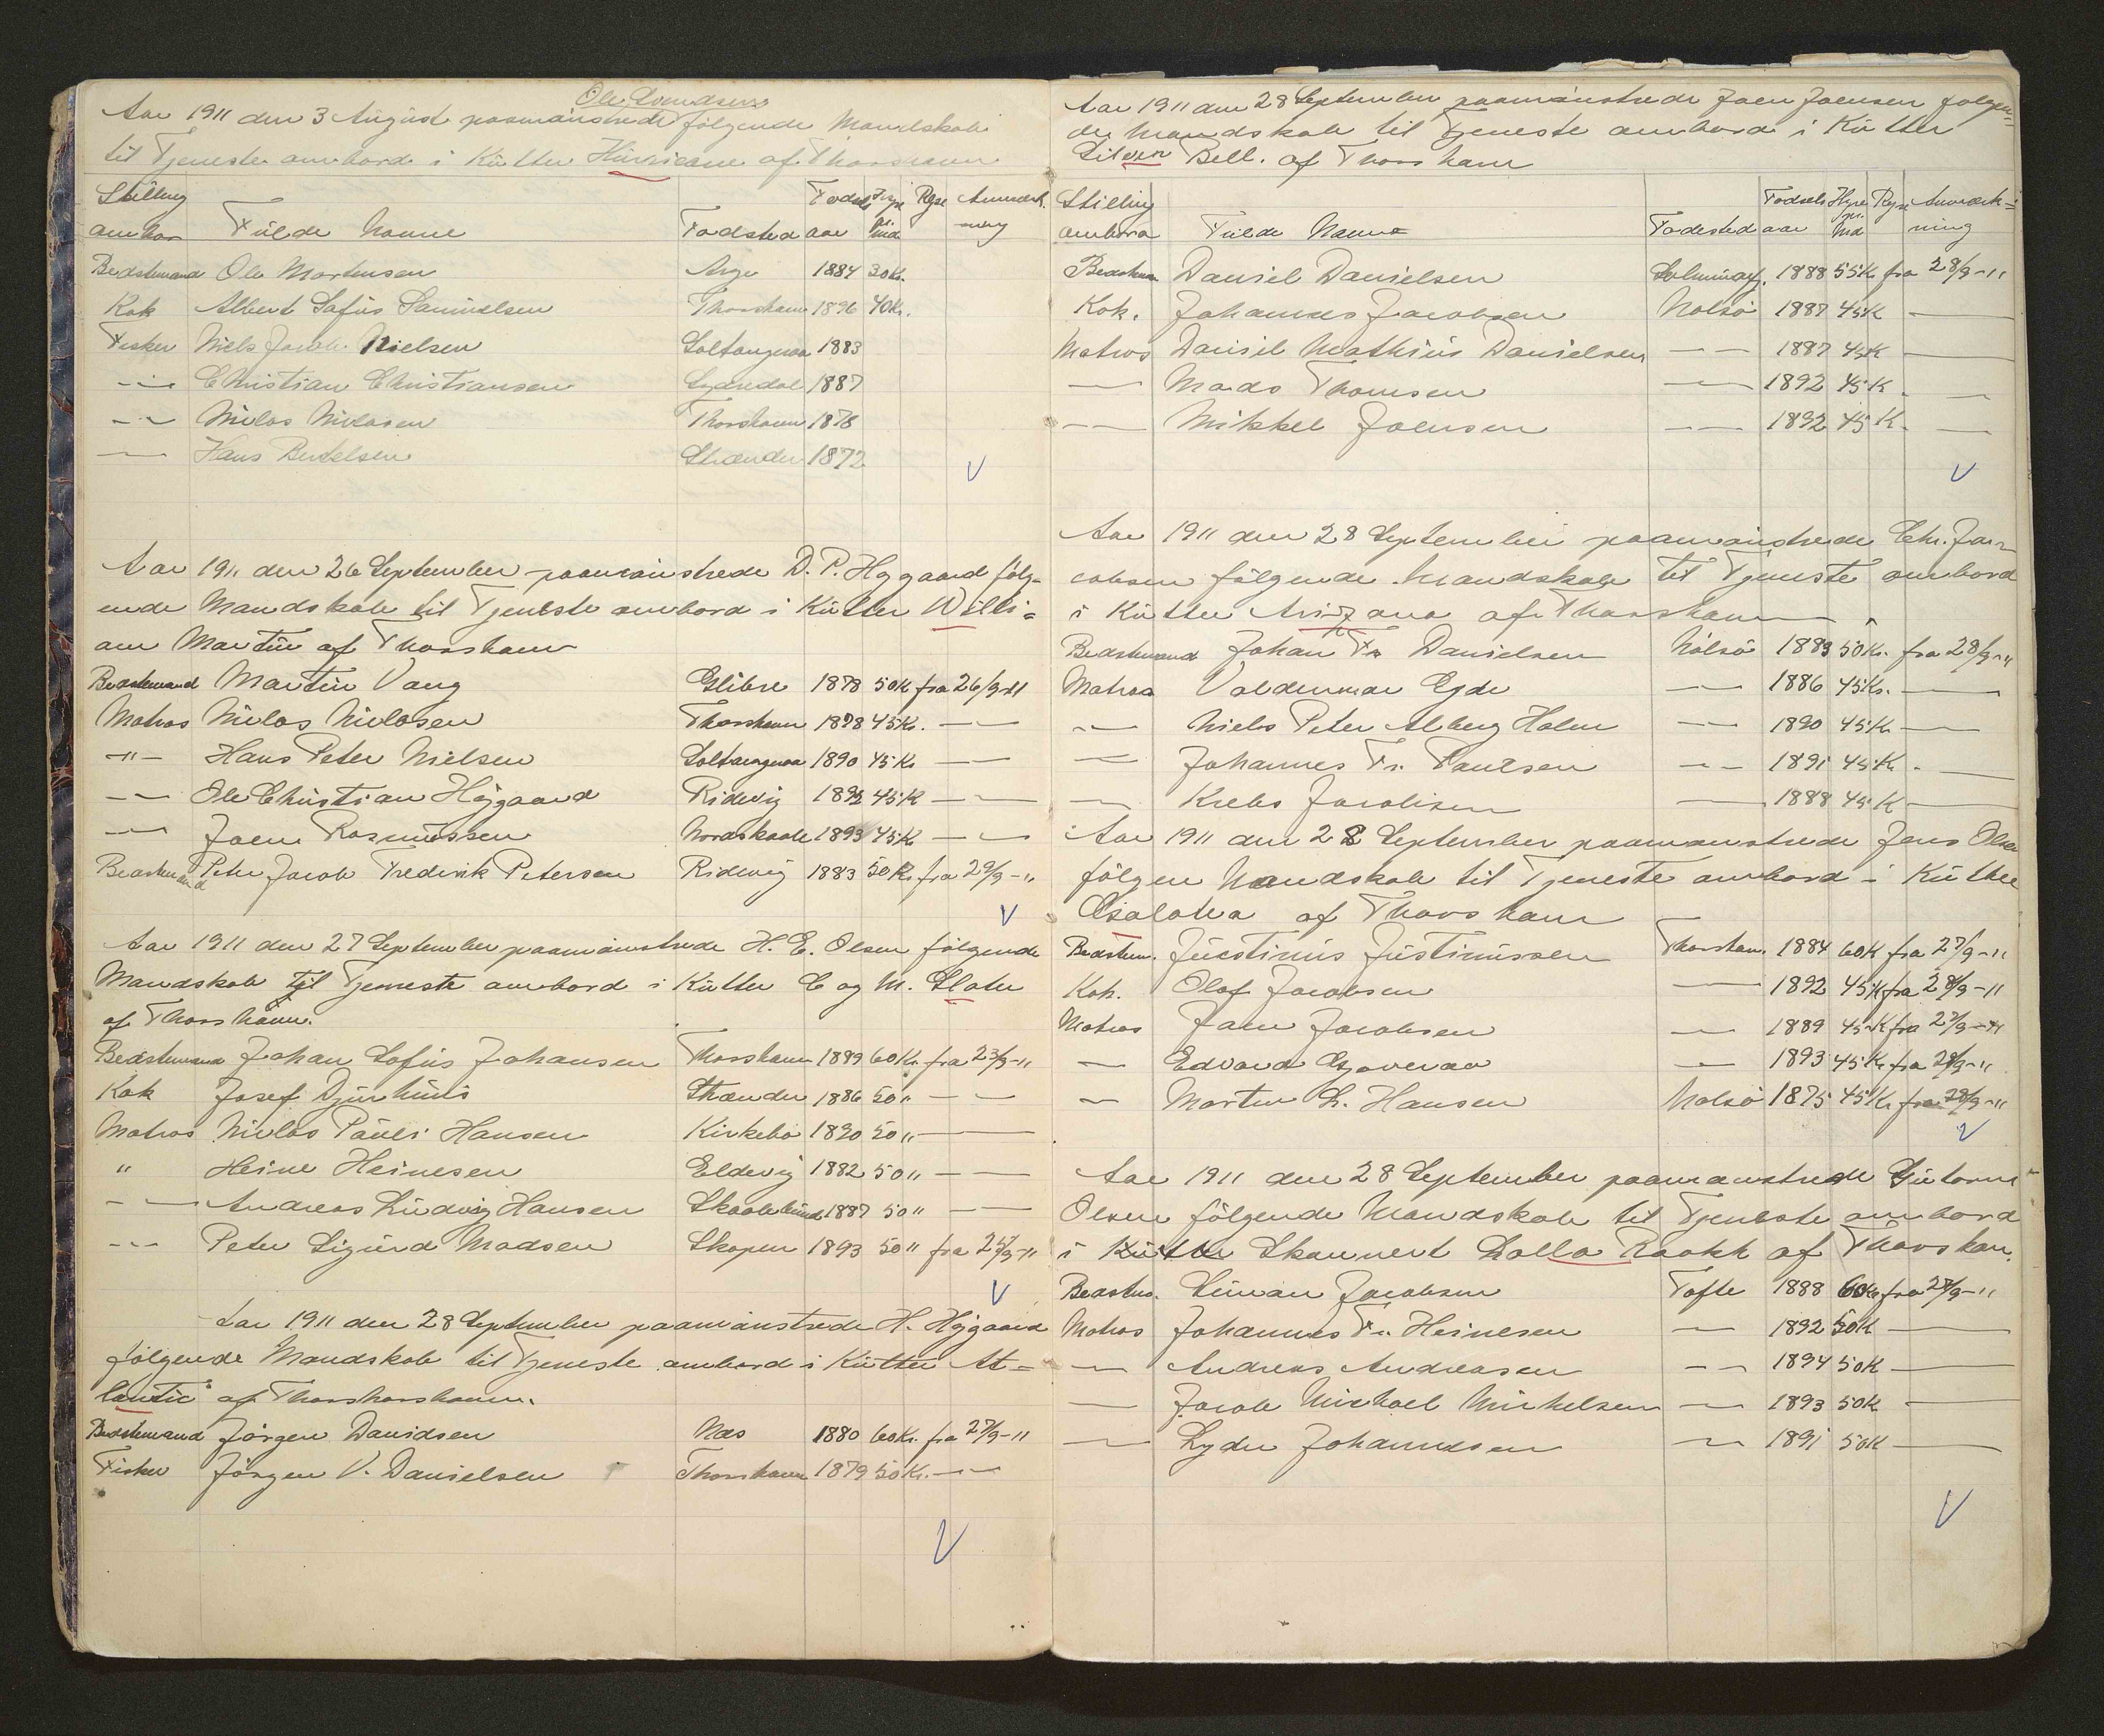 Ole Svendsen
Aar 1911 den 3 August paamönstrede følgende Mandskab
til Tjeneste ombord i Kutter Hurricane af Thorshavn
Stilling ombor Fulde Navne Fødsted Fødsels aar Hyre pr. Md Rejse Anmærkning
Bedstemand Ole Mortensen Arge 1884 30Kr.
Kok Albert Sofus Samuelsen Thorshavn 1896 40Kr.
Fisker Niels Jacob Nielsen Saltangeraa 1883
—"— Christian Christiansen Syndredal 1887
—"— Niclas Niclasen Thorshavn 1878
—"— Hans Bertelsen Strænder 1872
Aar 1911 den 26 September paamönstrede D. P. Højgaard følg-
ende Mandskab til Tjeneste ombord i Kutter Willi=
am Martin af Thorshavn
Bedstemand Martin Vang Glibre 1878 50K fra 26/9-11
Matros Niclas Niclasen Thorshavn 1878 45Kr. —"—
—"— Hans Peter Nielsen Saltangeraa 1890 45Kr —"—
—"— Ole Christian Højgaard Ridevig 1892 45K —"—
—"— Joen Rasmussen Nordskaale 1893 45K —"—
Bedstemand Peter Jacob Frederik Petersen Ridevig 1883 50Kr. fra 29/9-11
Aar 1911 den 27 September paamönstrede H. E. Olsen følgende
Mandskab til Tjeneste ombord i Kutter C og M. Slater
af Thorshavn.
Bedstemand Johan Sofus Johansen Thorshavn 1889 60Kr. fra 23/9-11
Kok Josef Djurhuus Strænder 1886 50" —"—
Matros Niclas Pauli Hansen Kirkebø 1890 50" —"—
" Heine Heinesen Eldevig 1882 50" —"—
—"— Andreas Ludvig Hansen Skaalebund 1887 50" —"—
—"— Peter Sigurd Madsen Skopen 1893 50" fra 25/9-11
Aar 1911 den 28 September paamönstrede H. Højgaard
følgende Mandskab til Tjeneste ombord i Kutter At=
lantic af Thorshavn.
Bedstemand Jörgen Davidsen Næs 1880 60Kr. fra 27/9-11
Fisker Jörgen V. Danielsen Thorshavn 1879 50Kr. —"—
Aar 1911 den 28 September paamönstrede Joen Joensen følgen=
de Mandskab til Tjeneste ombord i Kutter
Silver Bell. af Thorshavn
Stilling ombord Fulde Navne Fødested Fødsels aar Hyre pr. Md Rejse Anmærkning
Bedstem Daniel Danielsen Solmundefj. 1888 55K fra 28/9-11
Kok. Johannes Jacobsen Nolsø 1887 45K —
Matros Daniel Mathius Danielsen —"— 1887 45K —
—"— Mads Thomsen —"— 1892 45K —
—"— Mikkel Joensen —"— 1892 45K. —
Aar 1911 den 28 September paamönstrede Chr. Ja=
cobsen følgende Mandskab til Tjeneste ombord
i Kutter Arizona af Thorshavn
Bedstemand Johan Fr. Danielsen Nolsø 1883 50Kr. fra 28/9-11
Matros Valdemar Egde —"— 1886 45Kr. —
—"— Niels Peter Alberg Holm —"— 1890 45Kr —
—"— Johannes Fr. Paulsen —"— 1891 45K. —
—"— Krebs Jacobsen —"— 1888 45K —
Aar 1911 den 28 September paamönstrede Jens Olsen
følgen Mandskab til Tjeneste ombord i Kutter
Osalotea af Thorshavn
Bedstem. Justinus Justinussen Thorshavn. 1884 60K fra 27/9-11
Kok. Olaf Jacobsen —"— 1892 45K fra 28/9-11
Matros Joen Jacobsen —"— 1889 45K fra 27/9-11
—"— Edvard Gjoveraa —"— 1893 45Kr fra 28/9-11
—"— Morten L. Hansen Nolsø 1875 45Kr fra 28/9-11
Aar 1911 den 28 September paamönstrede Gutorm
Olsen følgende Mandskab til Tjeneste ombord
i Kutter Skonnert Lalla Rookh af Thorshavn.
Bedstm. Simon Jacobsen Tofte 1888 60Kr fra 27/9-11
Matros Johannes Fr. Heinesen —"— 1892 50K —
—"— Andreas Andreasen —"— 1894 50K —
—"— Jacob Michael Michelsen —"— 1893 50K —
—"— Lyder Johannesen —"— 1891 50K —